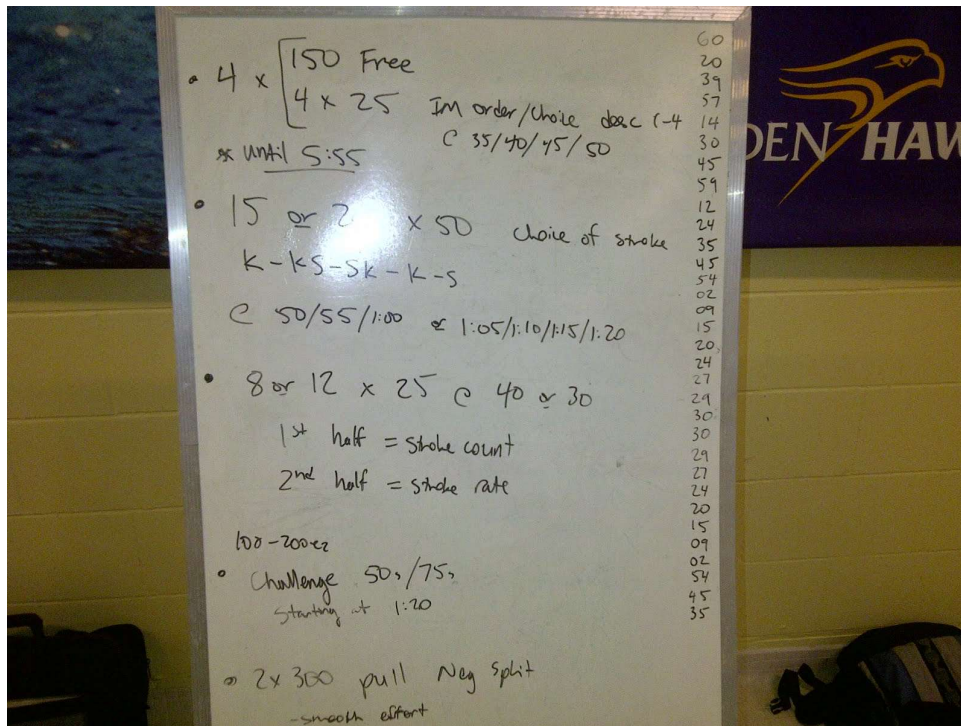 • 4 x [150 Free
4 x 25 Im order/choice desc 1-4
@ 35/40/45/50
* until 5:55
• 15 or 2 x 50 choice of stroke
K-KS-SK-K-S
@ 50/55/1:00 or 1:05/1:10/1:15/1:20
• 8 or 12 x 25 @ 40 or 30
1st half = stroke count
2nd half = stroke rate
100-200 ez
• Challenge 50s/75s
starting at 1:20
• 2 x 300 pull Neg split
- smooth effort
60
20
39
57
14
30
45
59
12
24
35
45
54
02
09
15
20
24
27
29
30
30
29
27
24
20
15
09
02
54
45
35
DEN HAW